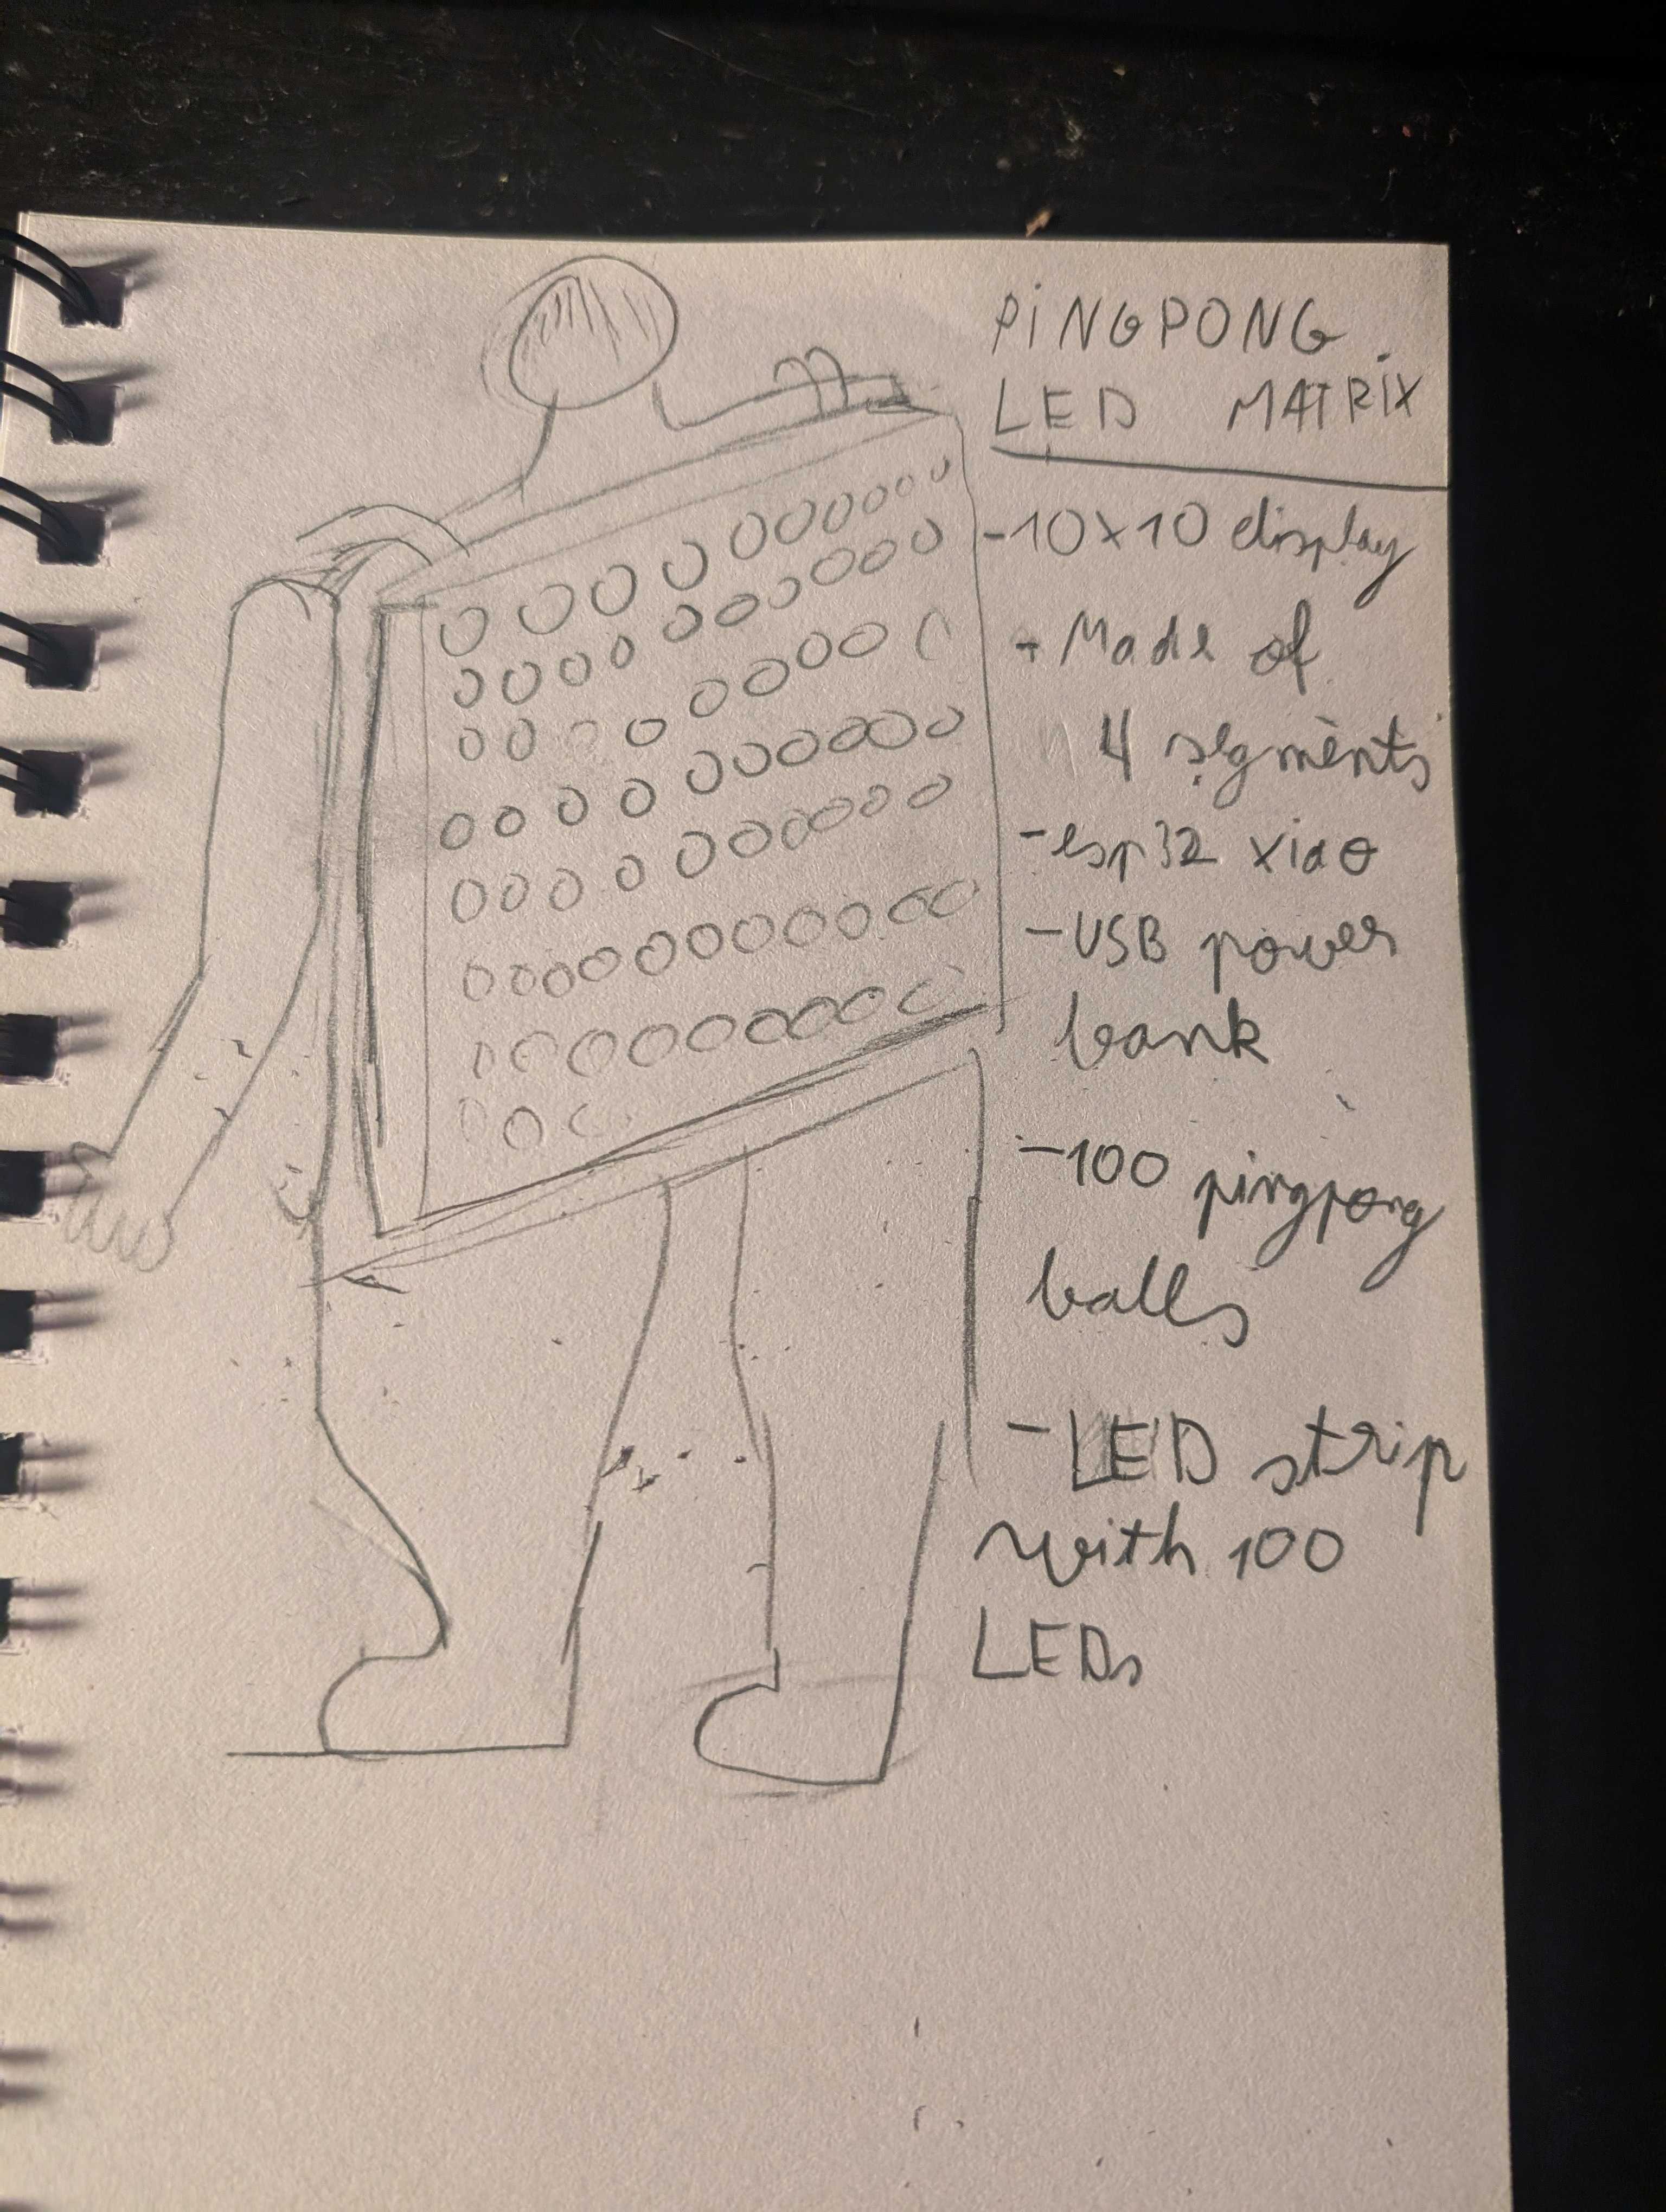 PiNGPONG
LED MATRiX
-10x10 display
- Made of
4 segments
-esp32 xiao
-USB power
bank
-100 pingpong
balls
-LED strip
with 100
LEDs